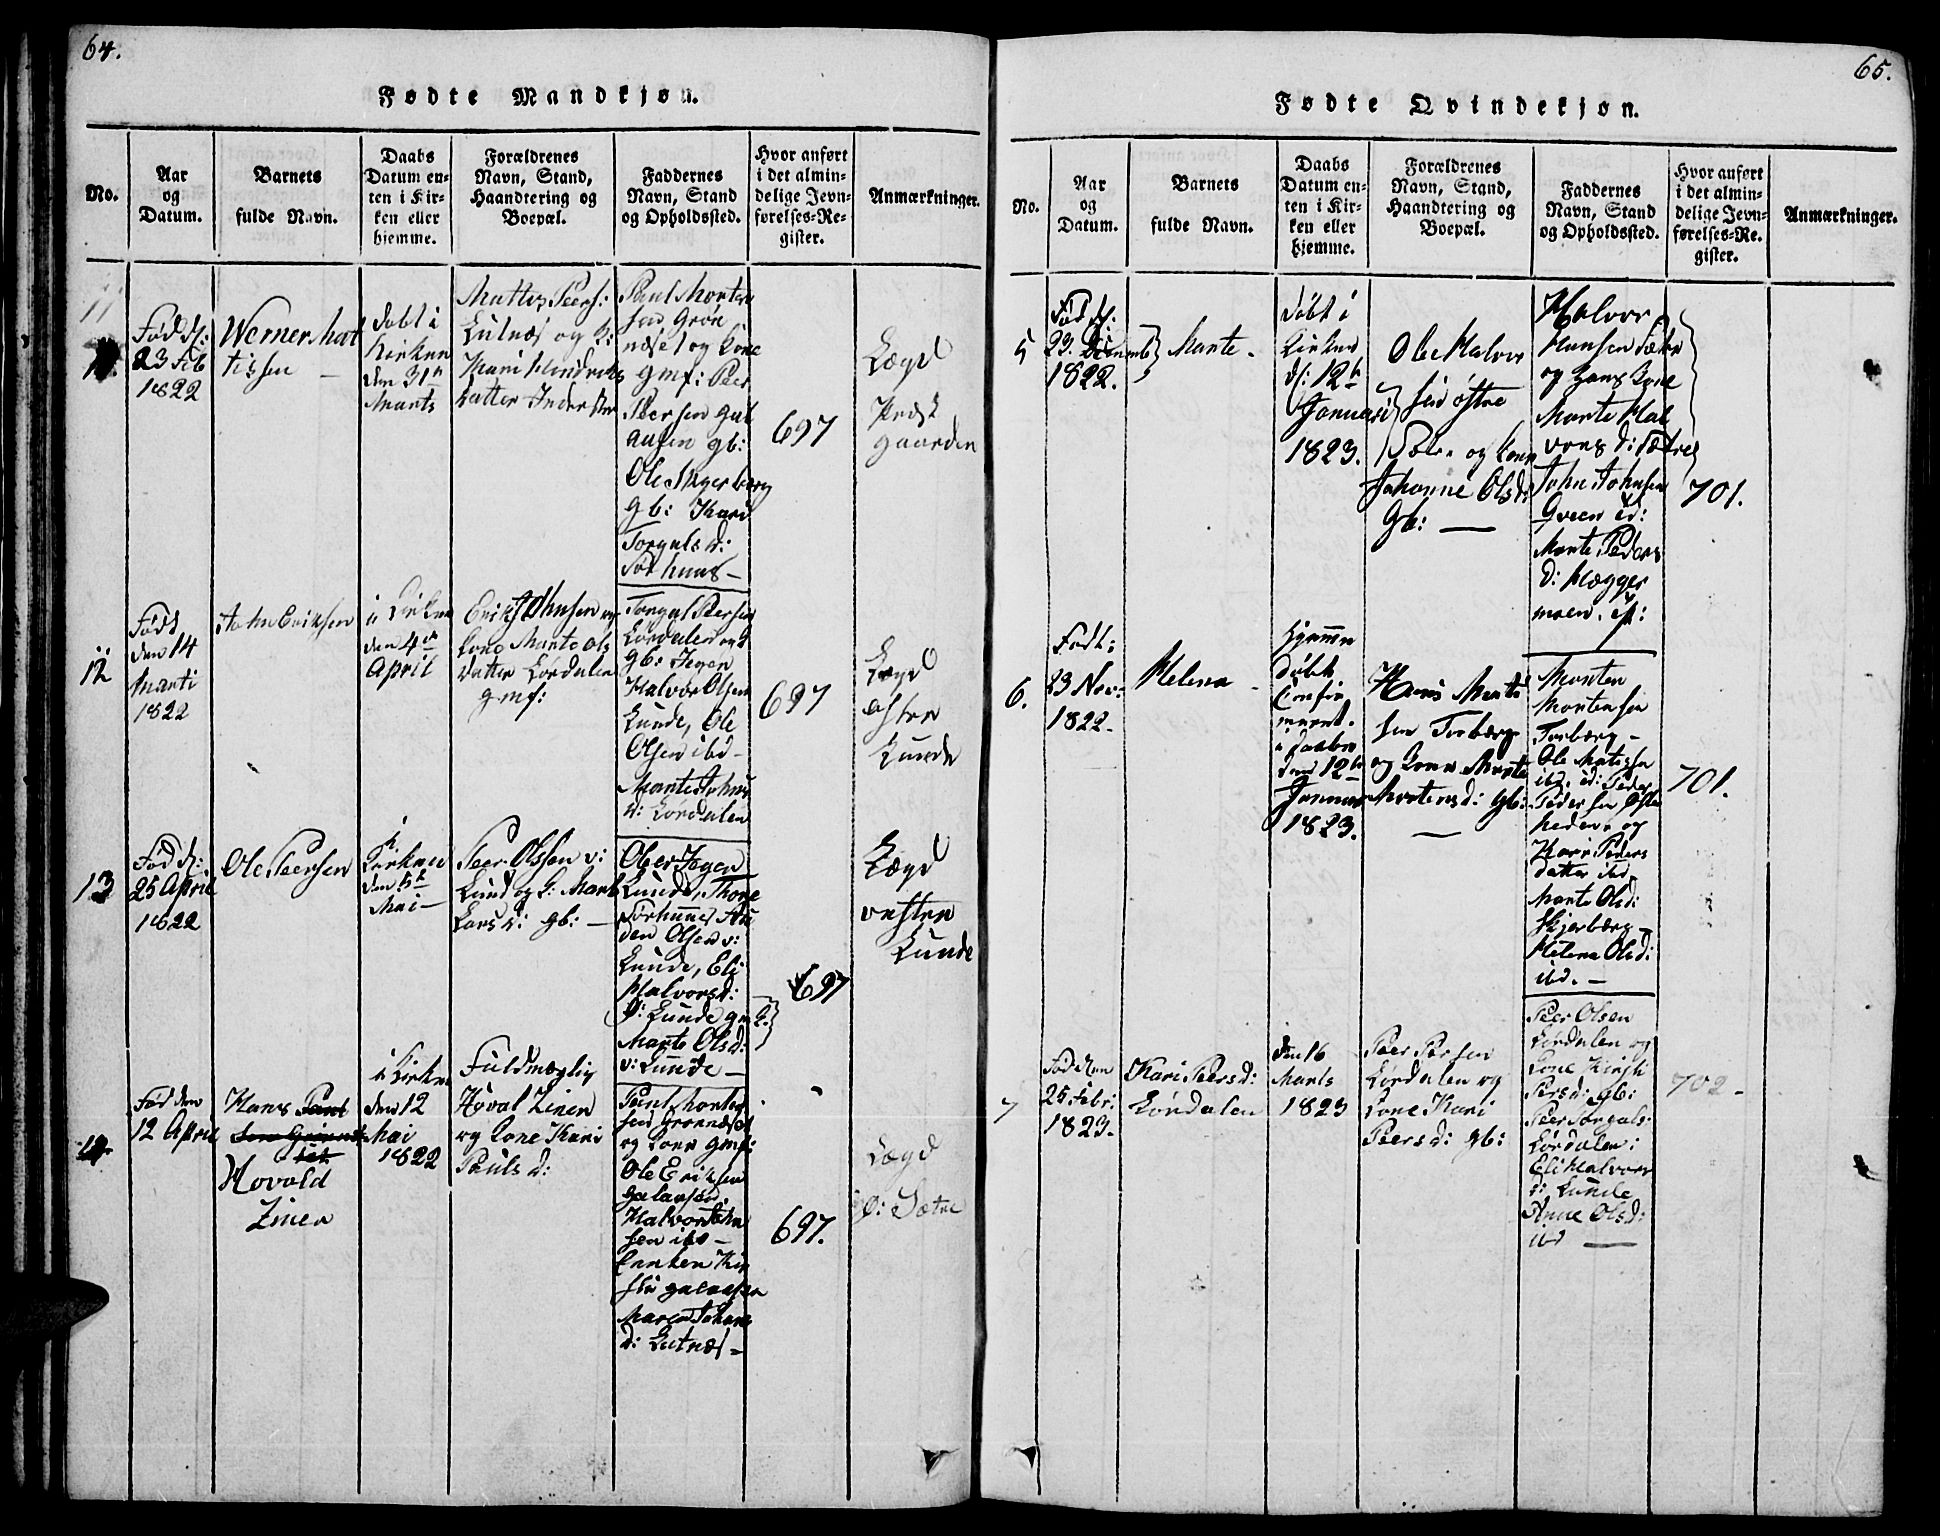 64.
Fødte Mandkjøn.
No.
Aar
og
Datum.
Barnets
fulde Navn.
Daabs
Datum en-
ten i Kir-
ken eller
hjemme.
Forældrenes
Navn, Stand,
Haandtering og
Boepæl.
Faddernes
Navn, Stand
og Opholdssted.
Hvor anført
i det almin-
delige Jevn-
førelses-Re-
gister.
Anmærkninger.
11
Fød d:
23 Feb
1822
Werner Mat
tissen
døbt i
Kirken
den 31
Marts
Mattis Peers:
Lutnæs og K:
Kari Hindriks
datter
Paul Morten
sen Grøn
næset og Kone
gmf: Peer
Peersen Gal
aasen gb:
Ole Skjerberg
gb: Kari
Torgals d:
Sørhuus
697
Lægd
Præst
gaarden
12
Født
den 14
Marti
1822
John Eriksen
i Kirken
den 4
April
Erik Johnsen og
Kone Marte Ols
datter Lørdalen
gmf:
Torgal Peersen
Lørdalen
gb: Jegen
Halvor Olsen
Lunde, Ole
Olsen ibd
Marte Johns
d: Lørdalen
697
Lægd
østre
Lunde
13
Fød d:
25 April
1822
Ole Peersen
i
Kirken
den 5
Mai
Peer Olssen v:
Lund og K: Marte
Lars d: gb:
Ole Jegen
Lunde, Thore
Sørhuus
den Olsen v:
Lunde, Eli
Halvorsd:
Ø: Lunde
Marte Olsd:
v: Lunde
697
Lægd
vestre
Lunde
14
Fød den
12 April
Hans Paul
sen Grønnæ
set
Hovald
Zinen
i Kirken
den 12
Mai
1822
Fuldmægtig
Hoval Zinen
og Kone Kari
Pauls d:
Paul Morten
sen Grønnæset
og Kone gmf:
Ole Eriksen
Galaasen
Halvor John
sen ibd
Enken Kir
sti Galaasen
Maren Johans
d: Lutnæs
697.
Lægd
Ø: Sætre
65.
Fødte Qvindekjøn.
No.
Aar
og
Datum.
Barnets
fulde Navn.
Daabs
Datum en-
ten i Kir-
ken eller
hjemme.
Forældrenes
Navn, Stand,
Haandtering og
Boepæl.
Faddernes
Navn, Stand
og Opholdssted.
Hvor anført
i det almin-
delige Jevn-
førelses-Re-
gister.
Anmærkninger.
5
Fød d:
23. Decemb
1822.
Marte
døbt i
Kirken
d: 12
Januari
1823.
Ole Halvor
sen østre
Sætre og Kone
Johanne Olsd:
Gb:
Halvor
Hansen Sætre
og Hans Kone
Marte Hal
vors d: Sætre
John Johnsen
Qveen
Marte Peders
d: Hægger
moen
701.
6.
Født:
23 Nov:
1822.
Helena
hjemme
døbt
Confir
meret
i Trøbu
den 12
Januar
1823.
Hans Morte
sen Torberg
og Kone Marte
Mortensd: Gb:
Morten
Mortensen
Torberg
Ole Matissen
ibd. Peder
Pedersen Øster
heden, og
Kari Peders
datter ibd.
Marte Olsd:
Skjerberg
Helena Olsd:
ibd.
701.
7
Fød den
25 Febr:
1823.
Kari Peersd:
Lørdalen
den 16
Marts
1823
Peer Persen
Lørdalen og
Kone Kari
Peersd: gb:
Peer Olsen
Lørdalen og
Kone Kirsti
Persd: gb:
Peer Torgals:
Lørdalen:
Eli Halvors
d: Lunde
Anne Olsd:
ibd
702